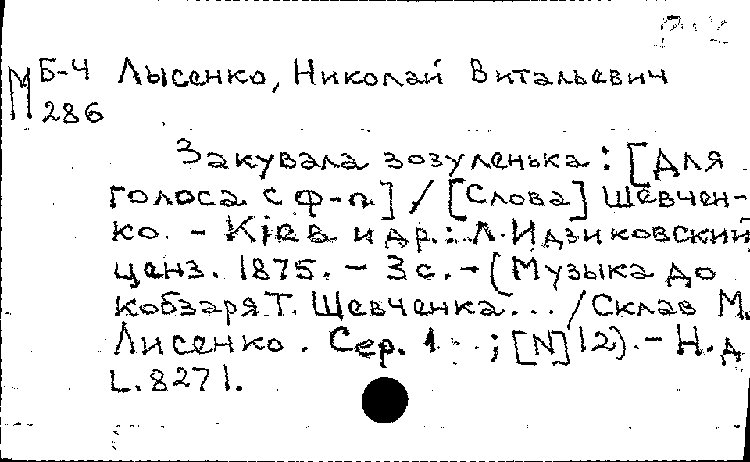 М Б-4 Лысенко, Николай Витальевич
286
Закувала зозуленька : [Для
голоса с ф-п] / [Слова] Шевчен-
ко. - Kieв и др. : Л. Идзиковский
ценз. 1875. - 3 с. - (Музыка до
кобзаря Т. Шевченка... / Склав М.
Лисенко. Сер. 1 ; [N] 12). - Н.д
L. 8271.